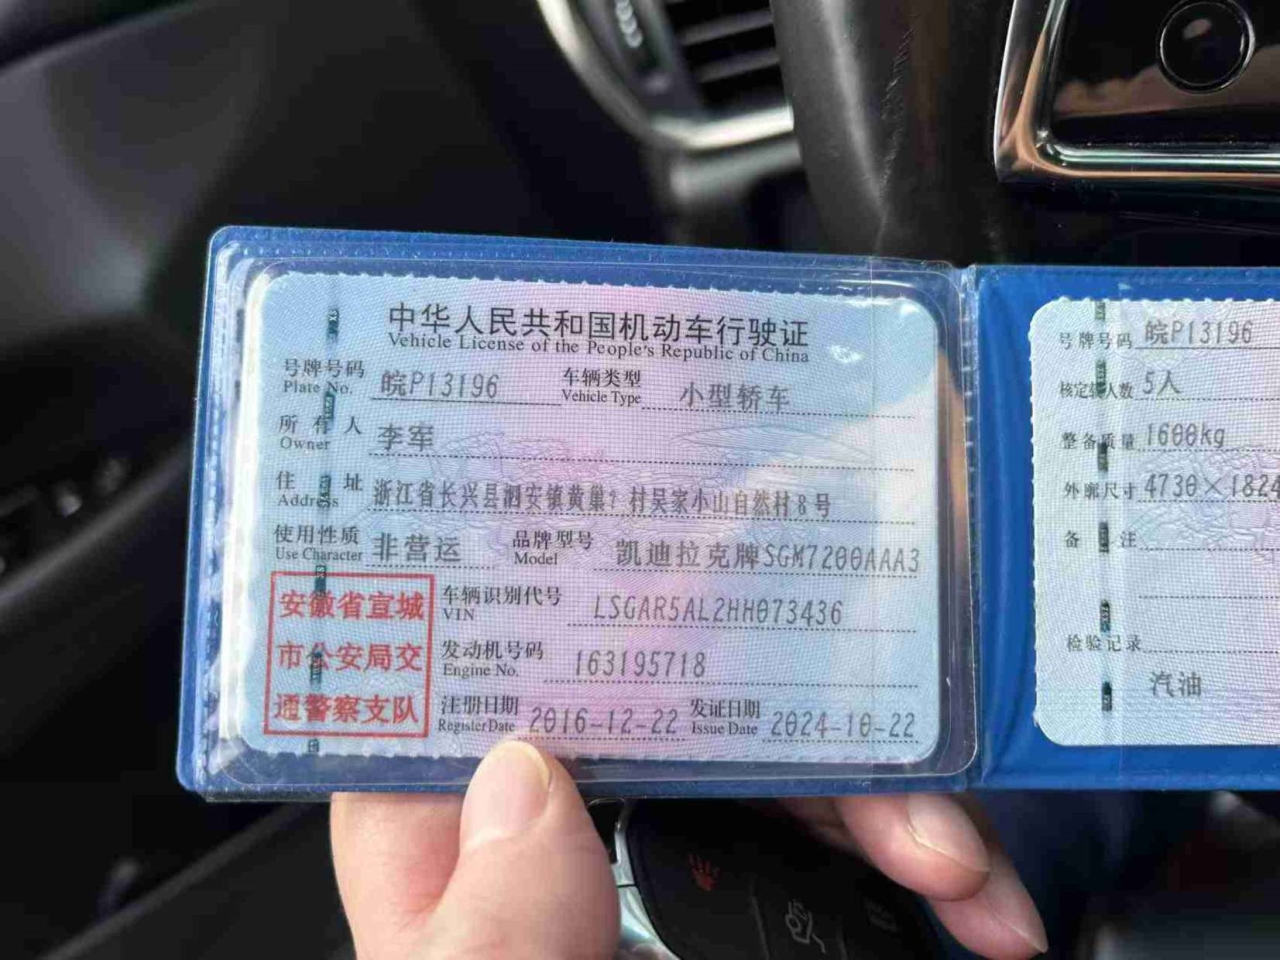 中华人民共和国机动车行驶证
Vehicle License of the People's Republic of China
号牌号码 皖P13196 车辆类型 小型轿车
Plate No. Vehicle Type
所有人 李军
Owner
住址 浙江省长兴县泗安镇黄巢?村吴家小山自然村8号
Address
使用性质 非营运 品牌型号 凯迪拉克牌SGM7200AAA3
Use Character Model
安徽省宣城
市公安局交
通警察支队
车辆识别代号 LSGAR5AL2HH073436
VIN
发动机号码 163195718
Engine No.
注册日期 2016-12-22 发证日期 2024-10-22
Register Date Issue Date
号牌号码 皖P13196
核定载人数 5人
整备质量 1600kg
外廓尺寸 4730×1824
备注
检验记录
汽油